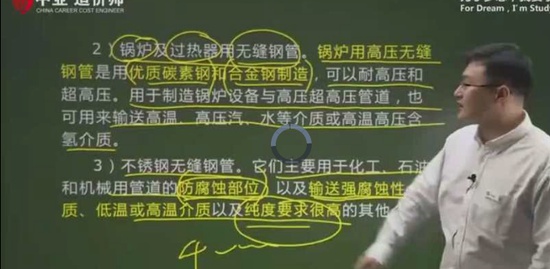 中业 造价师
CHINA CAREER COST ENGINEER
For Dream , I'm Study
2）锅炉及过热器用无缝钢管。锅炉用高压无缝
钢管是用优质碳素钢和合金钢制造，可以耐高压和
超高压。用于制造锅炉设备与高压超高压管道，也
可用来输送高温、高压汽、水等介质或高温高压含
氢介质。
3）不锈钢无缝钢管。它们主要用于化工、石油
和机械用管道的防腐蚀部位，以及输送强腐蚀性
质、低温或高温介质以及纯度要求很高的其他